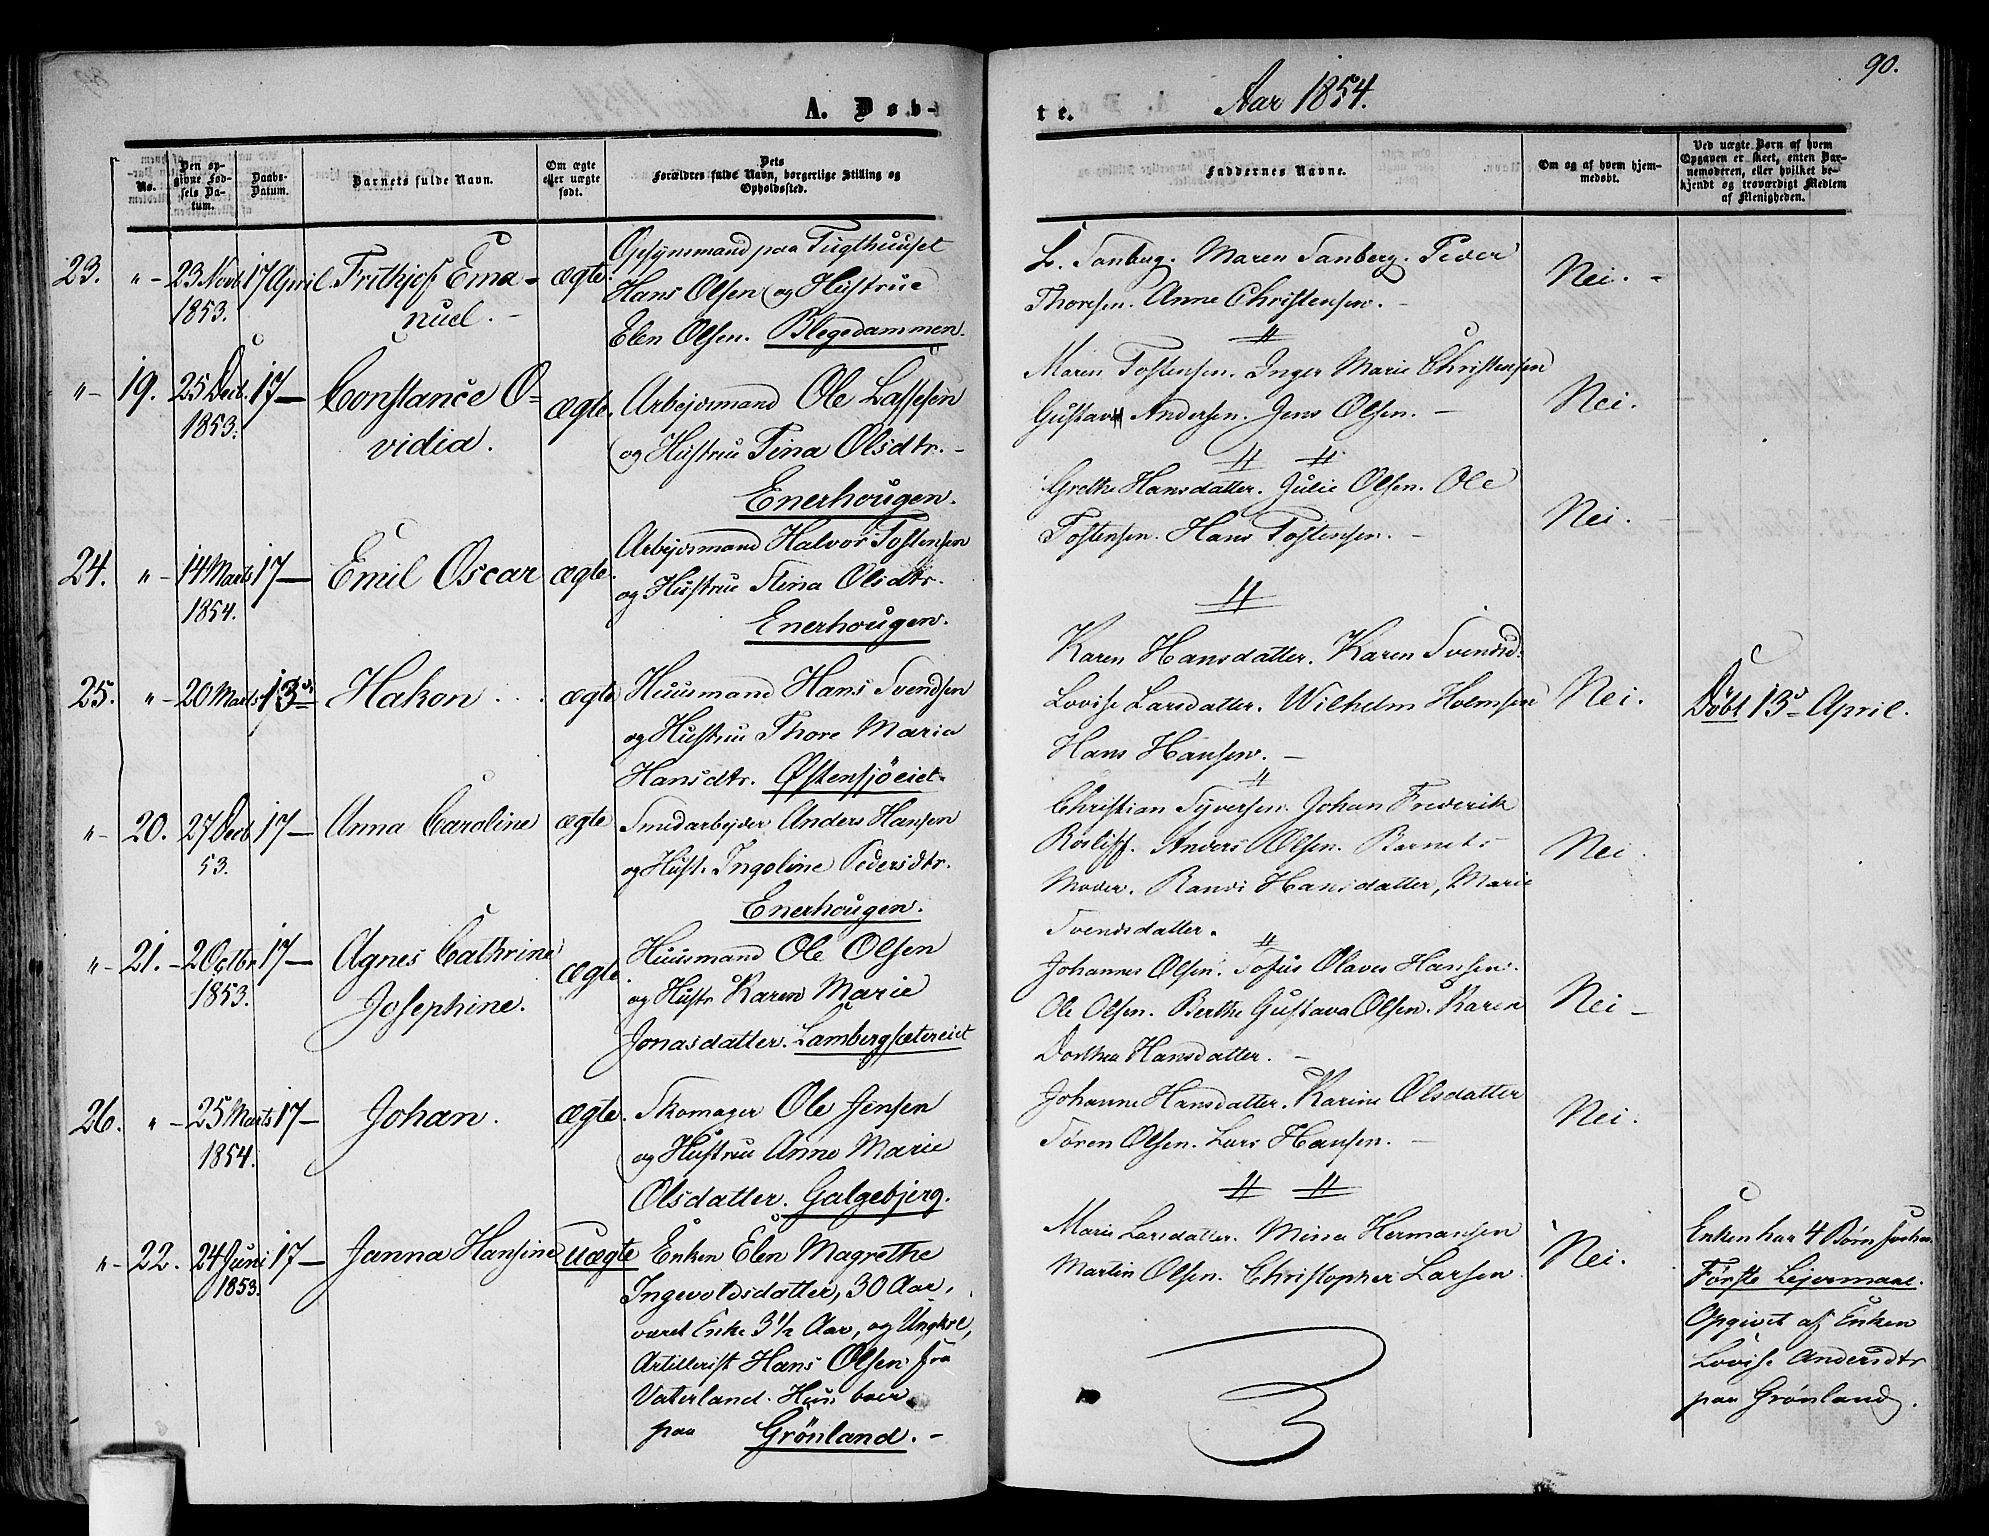 90.
A. Døb-
te.
Aar 1854.
No.
Den op-
givne Fød-
sels Da-
tum.
Daabs-
Datum.
Barnets fulde Navn.
Om ægte
eller uægte
født.
Dets
Forældres fulde Navn, borgerlige Stilling og
Opholdssted.
Faddernes Navne.
Om og af hvem hjem-
medøbt.
Ved uægte Børn af hvem
Opgaven er skeet, enten Bar-
nemoderen, eller hvilket be-
kjendt og troværdigt Medlem
af Menigheden.
23. "- 23 Novb. 17 April. Frithjof Ema-
1853. nuel. -
ægte.
Opsynsmand paa Tugthuuset
Hans Olsen og Hustrue
Elen Olsen. Blegedammen.
L. Tanberg. Maren Tanberg. Peder
Thoresen. Anne Christensen. -
Nei. -
"- 19. 25 Decb. 17 — Constance O=
1853. vidia.
ægte.
Arbejdsmand Ole Lassesen
og Hustrue Tina Olsdtr. -
Enerhougen.
Maren Tostensen. Inger Marie Christensen
Gustav Andersen. Jens Olsen. -
Nei.
24. "- 14 Marts 17 — Emil Oscar
1854.
ægte.
Arbejdsmand Halvor Tostensen
og Hustrue Stina Olsdtr.
Enerhougen.
Grethe Hansdatter. Julie Olsen. Ole
Tostensen. Hans Tostensen. -
Nei.
25. "- 20 Marts 13de Hakon.
ægte
Huusmand Hans Svendsen
og Hustrue Thore Maria
Hansdtr. Østensjöeiet.
Karen Hansdatter. Karen Svendsd.
Lovise Larsdatter. Wilhelm Holmsen
Hans Hansen. -
Nei.
Døbt 13de April.
"- 20. 27 Decb. 17 — Anna Caroline
53.
ægte
Smedarbejder Anders Hansen
og Hust. Ingoline Pedersdtr.
Enerhougen.
Christian Syversen. Johan Frederik
Anders Olsen. Barnets
Moder. Randi Hansdatter, Marie
Svendsdatter.
Nei.
"- 21. - 2 Octbr. 17 — Agnes Cathrine
1853. Josephine.
ægte.
Huusmand Ole Olsen
og Hustr Karen Marie
Jonasdatter. Lambergsætereiet
Johannes Olsen. Tofus Olaves Hansen.
Ole Olsen. Berthe Gustava Olsen. Karen
Dorthea Hansdatter. -
Nei -
26. "- 25 Marts 17 — Johan.
1854.
ægte.
Skomager Ole Jensen
og Hustrue Anne Marie
Olsdatter. Galgebjerg.
Johanne Hansdatter. Karine Olsdatter
Sören Olsen. Lars Hansen. -
Nei.
"- 22. 24 Juni 17 — Janna Hansine
1853.
uægte
Enken Elen Magrethe
Ingevoldsdatter, 30 Aar,
været Enke 3½ Aar, og Ungkrl,
Artillerist Hans Olsen fra
Vaterland. Hun boer
paa Grönland. -
Marie Larsdatter. Mina Hermansen
Martin Olsen. Christopher Larsen.
Nei.
Enken har 4 Børn forhen.
Første Lejermaal.
Opgivet af Enken
Lovise Andersdtr
paa Grönland.